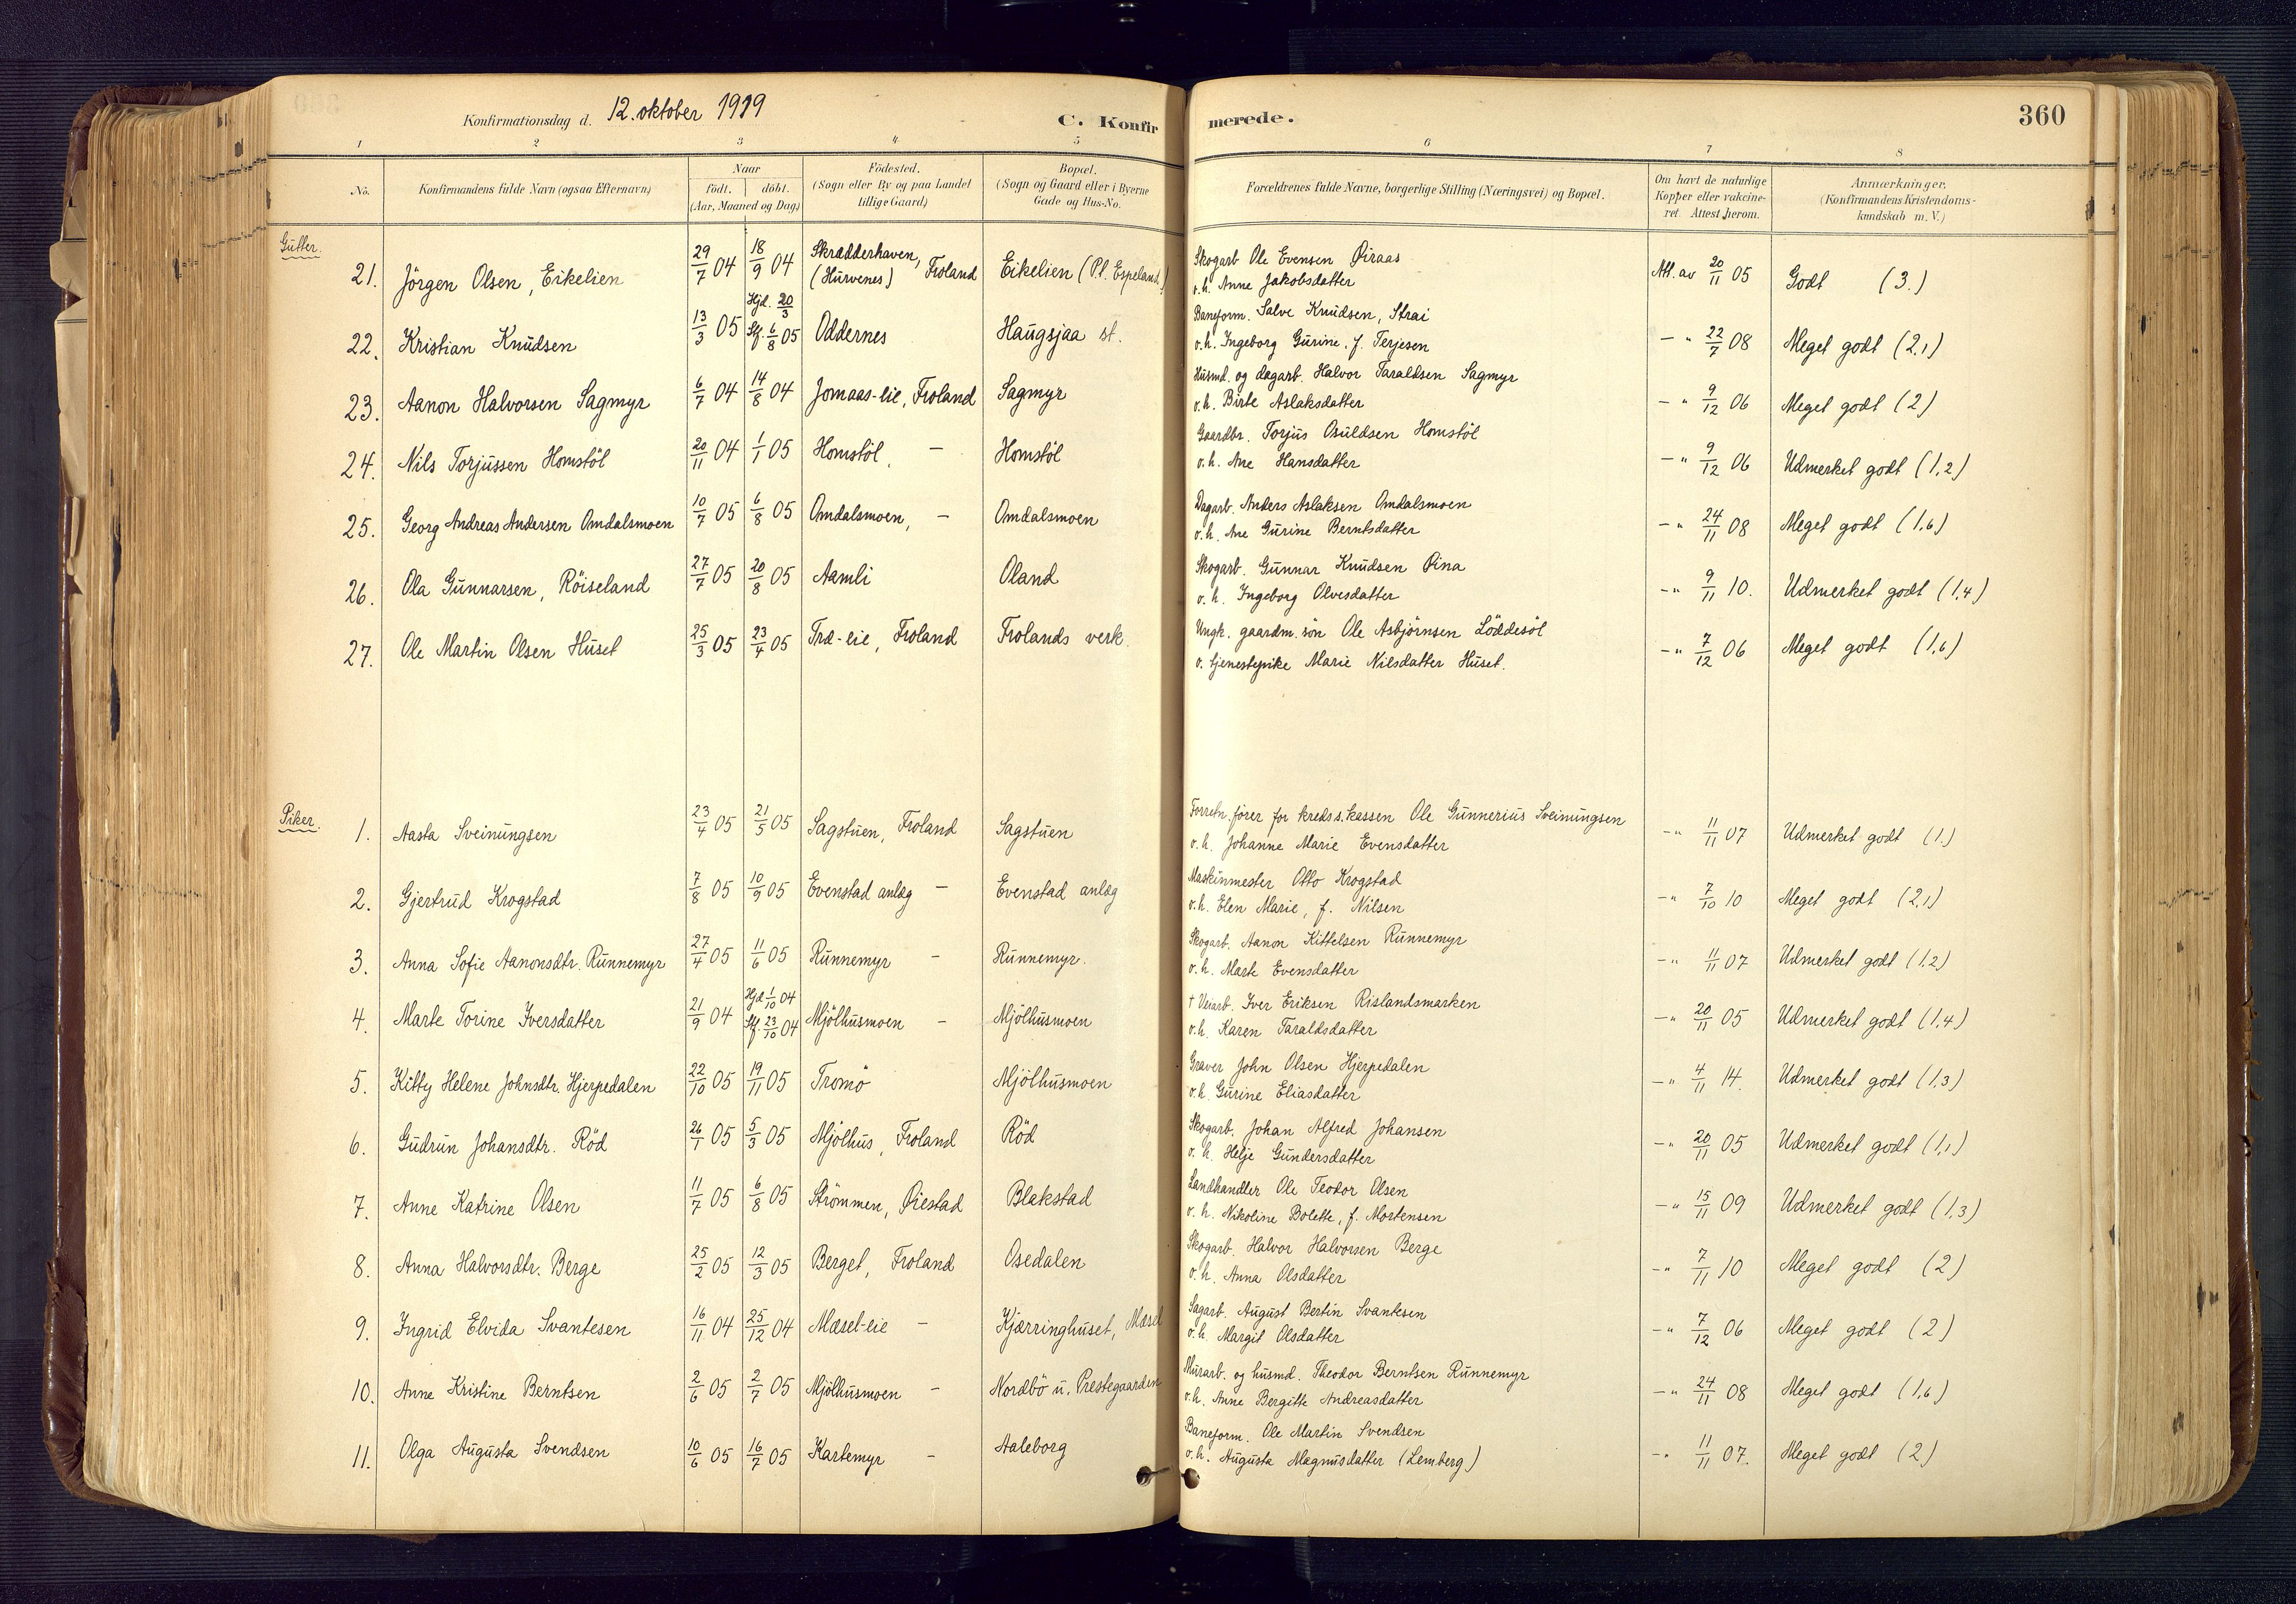 Konfirmationsdag d. 12. oktober 1919
C. Konfirmerede.
360
1 2 3 4 5 6 7 8
No.
Konfirmandens fulde Navn (ogsaa Efternavn)
Naar
født. døbt.
(Aar, Maaned og Dag)
Fødested.
(Sogn eller By og paa Landet
tillige Gaard)
Bopæl.
(Sogn og Gaard eller i Byerne
Gade og Hus-No.
Forældrenes fulde Navne, borgerlige Stilling (Næringsvei) og Bopæl.
Om havt de naturlige
Kopper eller vakcine-
ret. Attest herom.
Anmærkninger.
(Konfirmandens Kristendoms-
kundskab m. V.)
Gutter.
21. Jörgen Olsen, Eikelien 29/7 04 18/9 04 Skrædderhaven, (Hurvenes) Froland Eikelien (Pl. Espeland) Skogarb Ole Evensen Øiraas
o.h. Anne Jakobsdatter Att. av 20/11 05 Godt (3.)
22. Kristian Knudsen 13/3 05 Hjd. 20/3 Stf. 6/8 05 Oddernes Haugsjaa st. Baneform. Salve Knudsen, Strai
o.h. Ingeborg Gurine, f. Terjesen – " 22/7 08 Meget godt (2,1)
23. Aanon Halvorsen Sagmyr 6/7 04 14/8 04 Jomaas-eie, Froland Sagmyr Husmd. og dagarb. Halvor Taraldsen Sagmyr
o.h. Birte Aslaksdatter – " 9/12 06 Meget godt (2)
24. Nils Torjussen Homstöl 20/11 04 1/1 05 Homstöl, – Homstöl Gaardbr. Torjus Osuldsen Homstöl
o.h. Ane Hansdatter – " 9/12 06 Udmerket godt (1,2)
25. Georg Andreas Andersen Omdalsmoen 10/7 05 6/8 05 Omdalsmoen, – Omdalsmoen Dagarb. Anders Aslaksen Omdalsmoen
o.h. Ane Gurine Berntsdatter – " 24/11 08 Meget godt (1,6)
26. Ola Gunnarsen, Röiseland 27/7 05 20/8 05 Aamli Oland Skogarb. Gunnar Knudsen Øina
o.h. Ingeborg Olvesdatter – " 9/11 10. Udmerket godt (1,4)
27. Ole Martin Olsen Huset 25/3 05 23/4 05 Træ-eie, Froland Frolands verk. Ungk. gaardm. sön Ole Asbjörnsen Löddesöl
o. tjenestepike Marie Nilsdatter Huset. – " 7/12 06 Meget godt (1,6)
Piker.
1. Aasta Sveinungsen 23/4 05 21/5 05 Sagstuen, Froland Sagstuen Forretn. förer for kreds s. kassen Ole Gunnerius Sveinungsen
o.h. Johanne Marie Evensdatter – " 11/11 07 Udmerket godt (1.)
2. Gjertrud Krogstad 7/8 05 10/9 05 Evenstad anlæg – Evenstad anlæg Maskinmester Otto Krogstad
o.h. Elen Marie, f. Nilsen – " 7/10 10 Meget godt (2,1)
3. Anna Sofie Aanonsdtr. Runnemyr 27/4 05 11/6 05 Runnemyr – Runnemyr. Skogarb. Aanon Kittelsen Runnemyr
o.h. Marte Evensdatter – " 11/11 07 Udmerket godt (1,2)
4. Marte Torine Iversdatter 21/9 04 Hjd 1/10 04 Stf. 23/10 04 Mjölhusmoen – Mjölhusmoen † Veiarb. Iver Eriksen Rislandsmarken
o.h. Karen Taraldsdatter – " 20/11 05 Udmerket godt (1,4)
5. Kitty Helene Johnsdtr. Hjerpedalen 22/10 05 19/11 05 Tromö Mjölhusmoen Graver John Olsen Hjerpedalen
o.h. Gurine Eliasdatter – " 4/11 14. Udmerket godt (1,3)
6. Gudrun Johansdtr. Röd 26/1 05 5/3 05 Mjölhus, Froland Röd Skogarb. Johan Alfred Johansen
o. h. Helje Gundersdatter – " 20/11 05 Udmerket godt (1,1)
7. Anne Katrine Olsen 11/7 05 6/8 05 Strömmen, Øiestad Blakstad Landhandler Ole Teodor Olsen
o. h. Nikoline Bolette, f. Mortensen – " 15/11 09 Udmerket godt (1,3)
8. Anna Halvorsdtr. Berge 25/2 05 12/3 05 Berget, Froland Osedalen Skogarb. Halvor Halvorsen Berge
o. h. Anna Olsdatter – " 7/11 10 Meget godt (2)
9. Ingrid Elvida Svantesen 16/11 04 25/12 04 Mæsel-eie – Kjærringhuset, Mæsel Sagarb. August Bertin Svantesen
o. h. Margit Olsdatter – " 7/12 06 Meget godt (2)
10. Anne Kristine Berntsen 2/6 05 2/7 05 Mjölhusmoen – Nordbö u. Prestegaarden Murarb. og husmd. Theodor Berntsen Runnemyr
o.h. Anne Bergitte Andreasdatter – " 24/11 08 Meget godt (1,6)
11. Olga Augusta Svendsen 10/6 05 16/7 05 Kartemyr – Aaleborg Baneform. Ole Martin Svendsen
o.h. Augusta Magnusdatter (Lemberg) – " 11/11 07. Meget godt (2)